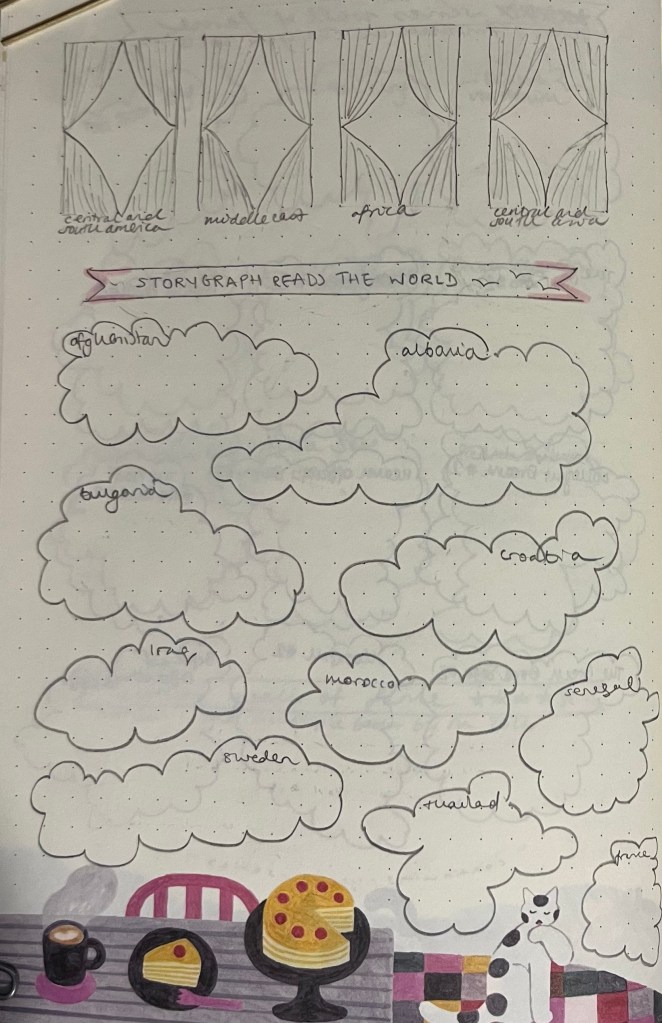 central and
south america
middle east
africa
central and
south asia
STORYGRAPH READS THE WORLD
afghanistan
albania
bulgaria
croatia
Iraq
morocco
senegal
sweden
thailand
france